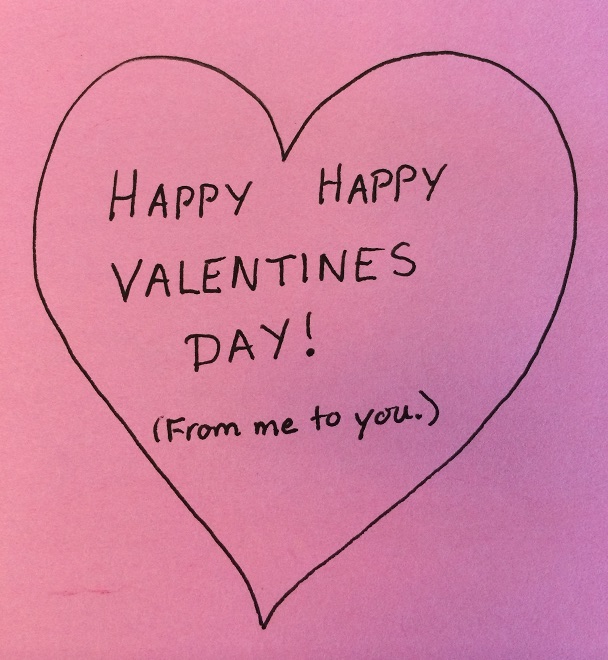 HAPPY HAPPY
VALENTINES
DAY!
(From me to you.)